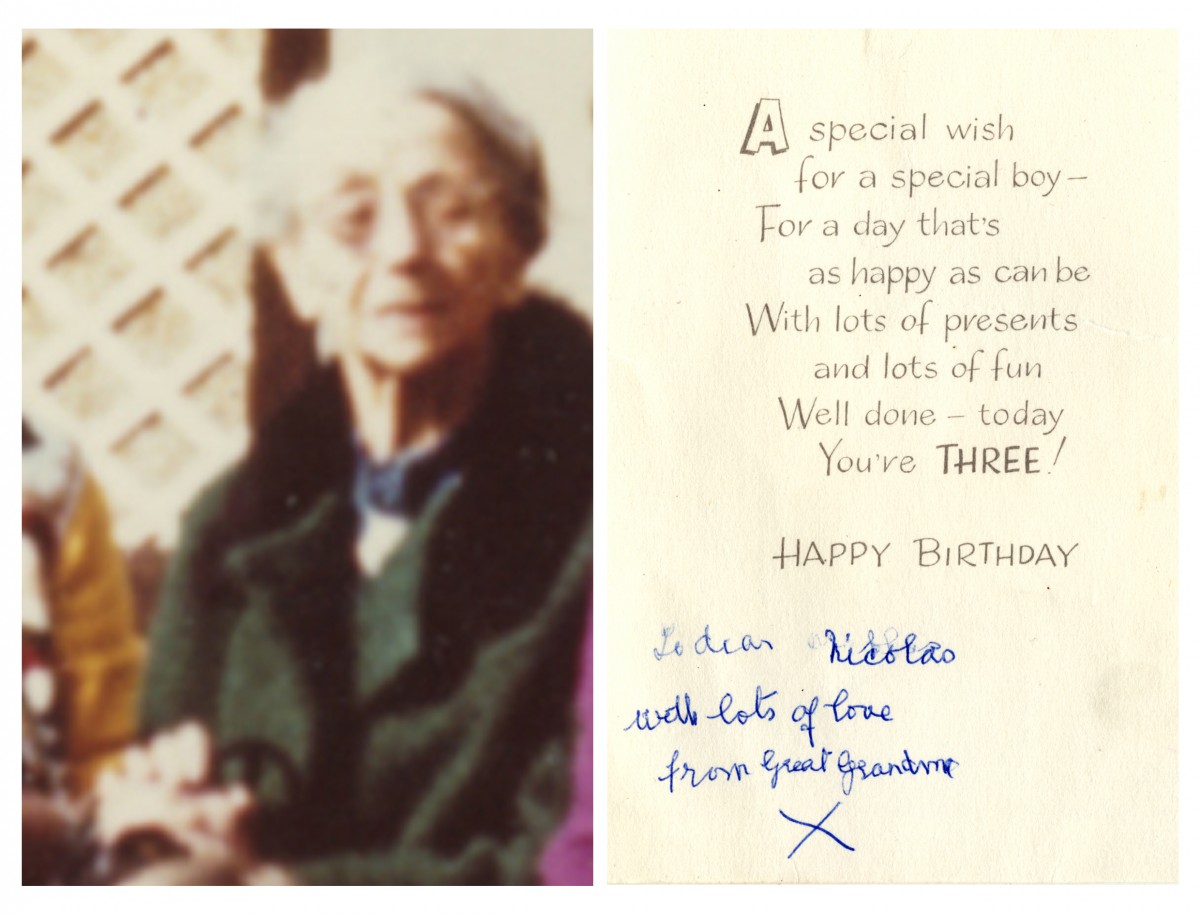 A special wish
for a special boy–
For a day that's
as happy as can be
With lots of presents
and lots of fun
Well done – today
You're THREE!
HAPPY BIRTHDAY
To dear Nicolas
with lots of love
from Great Grandma
X